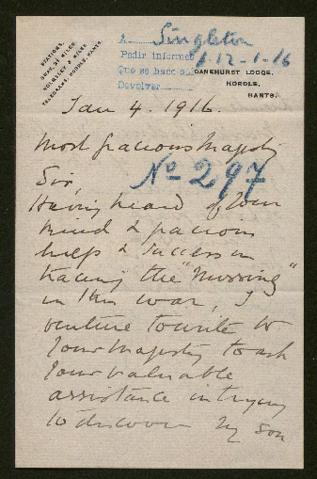 STATIONS,
SWAY, 2½ MILES
HOLMSLEY, 3 MILES
TELEGRAMS, HORDLE, HANTS.
A Singleton
Pedir informes 12-1-16
Que se hace
Devolver
DANEHURST LODGE,
HORDLE,
HANTS.
Jan 4. 1916.
Most Gracious Majesty
Sir,
Nº 297
Having heard of Your
kind & gracious
help & success in
tracing the "Missing"
in this war, I
venture to write to
Your Majesty to ask
Your valuable
assistance in trying
to discover my son